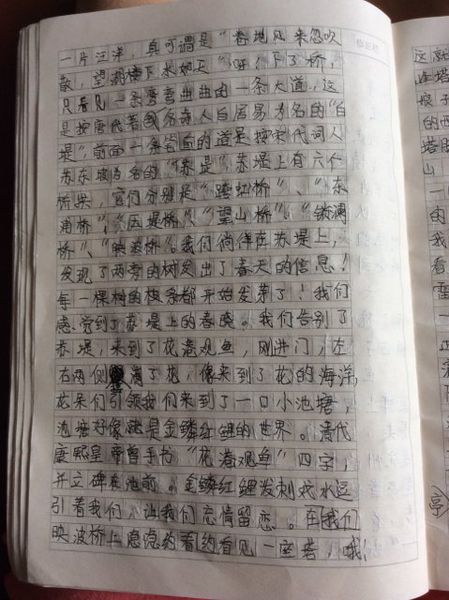 一片汪洋，真可谓是“卷地风来忽吹
散，望湖楼下水如天”啊！下了桥，
只看见一条弯弯曲曲由一条大道，这
是按唐代著名诗人白居易为名的“白
堤”，前面一条笔直的道是按宋代词人
苏东坡为名的“苏堤”，苏堤上有六个
桥梁，它们分别是“跨虹桥”、“东
浦桥”、“压堤桥”、“望山桥”、“锁澜
桥”、“映波桥”。我们徜徉在苏堤上，
发现了两旁的树发出了春天的信息！
每一棵树的枝条都开始发芽了！我们
感觉到了苏堤上的春晓。我们告别了
苏堤，来到了花港观鱼，刚进门，左
右两侧满了花，像来到了花的海洋，
花朵们引领我们来到了一口小池塘，
池塘好像就是金鳞红鲤的世界。清代
康熙皇帝曾手书“花港观鱼”四字，
并立碑在池前。金鳞红鲤发刺戏水逗
引着我们，让我们恋情留恋。在我们
映波桥上隐隐约看约看见一座塔，哦！
这就
连塔
娘子
的西
塔
山
一
的
我
看
雷
亭